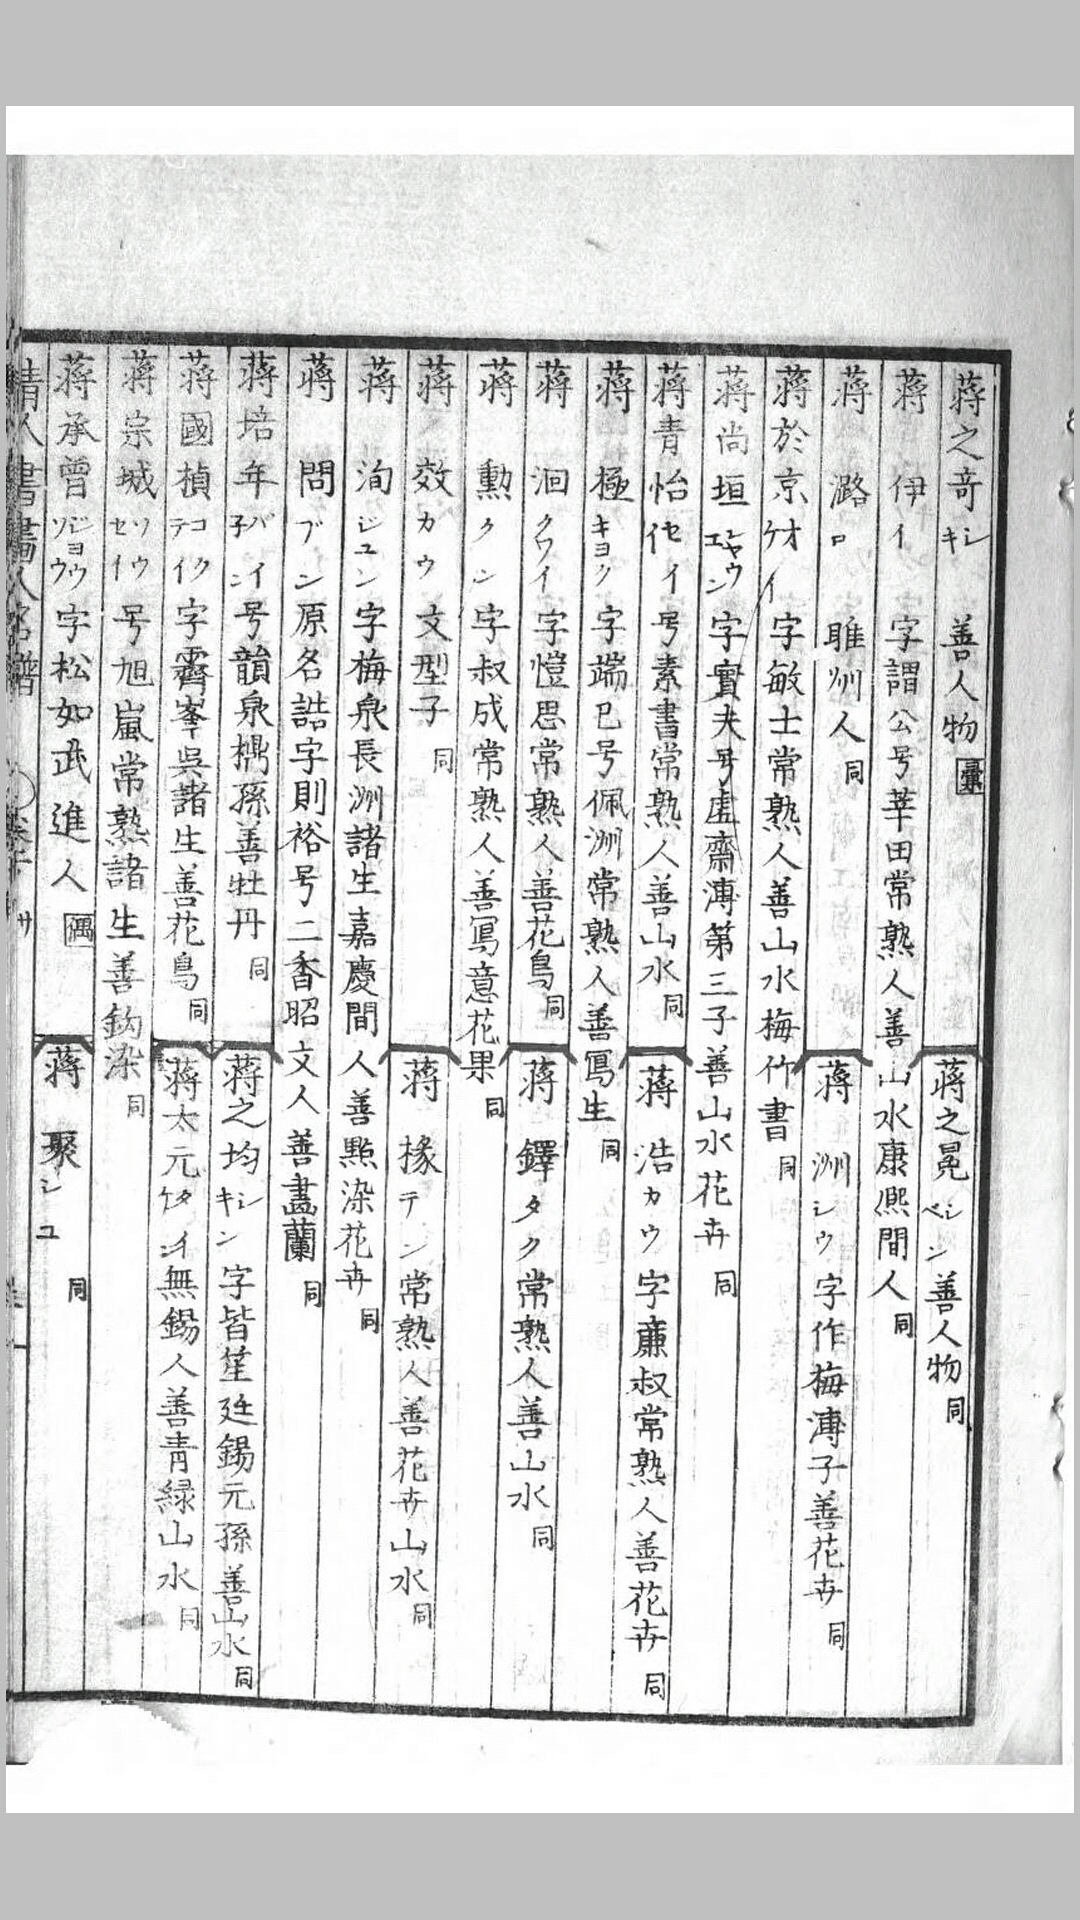 蔣之竒 シキ 善人物 畺
蔣之冕 シベン 善人物 同
蔣伊 イ 字謂公号莘田常熟人善山水康熈間人 同
蔣潞 ロ 睢州人 同
蔣洲 シウ 字作梅溥子善花卉 同
蔣於京 オケイ 字敏士常熟人善山水梅竹書 同
蔣尚垣 シヤウエン 字實夫号虚齋溥第三子善山水花卉 同
蔣青怡 セイイ 号素書常熟人善山水 同
蔣浩 カウ 字亷叔常熟人善花卉 同
蔣極 キヨク 字端巳号佩洲常熟人善寫生 同
蔣洄 クワイ 字愷思常熟人善花鳥 同
蔣鐸 タク 常熟人善山水 同
蔣勲 クン 字叔成常熟人善寫意花果 同
蔣效 カウ 文型子 同
蔣掾 テン 常熟人善花卉山水 同
蔣洵 ジユン 字梅泉長洲諸生嘉慶間人善點染花卉 同
蔣問 ブン 原名誥字則裕号二香昭文人善畫蘭 同
蔣培年 バイ子ン 号韻泉檇孫善牡丹 同
蔣之均 シキン 字皆笙廷錫元孫善山水 同
蔣國楨 コクテイ 字霽峯呉諸生善花鳥 同
蔣太元 タイケン 無錫人善青緑山水 同
蔣宗城 ソウセイ 号旭嵐常熟諸生善鈎染 同
蔣承曾 ジヨウソウ 字松如武進人 偶
蔣聚 シユ 同
清人書畫人名譜